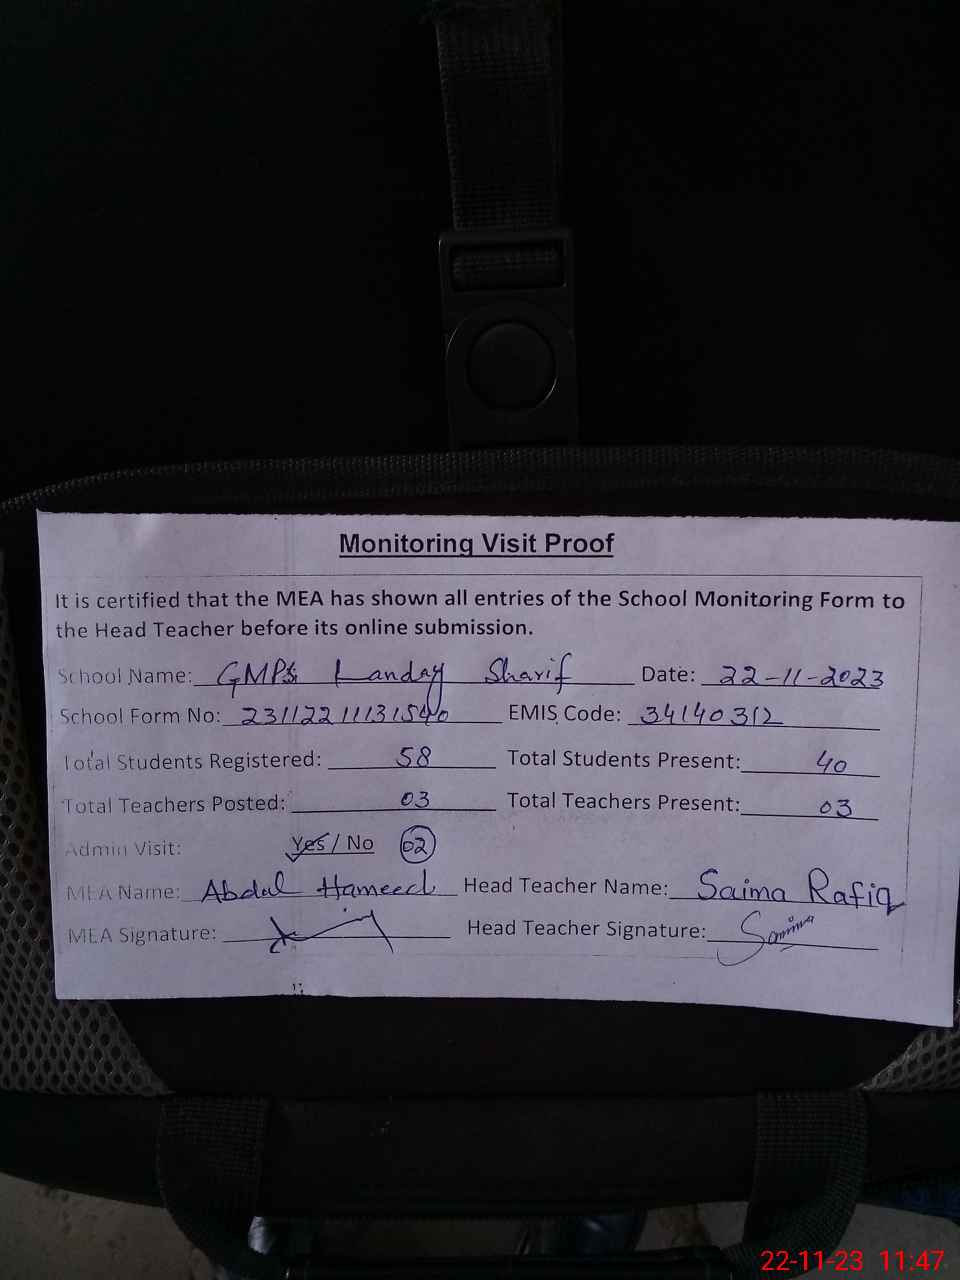 Monitoring Visit Proof
It is certified that the MEA has shown all entries of the School Monitoring Form to
the Head Teacher before its online submission.
School Name: GMPS Landay Sharif Date: 22-11-2023
School Form No: 23112211131540 EMIS Code: 34140312
Total Students Registered: 58 Total Students Present: 40
Total Teachers Posted: 03 Total Teachers Present: 03
Admin Visit: Yes / No 02
MEA Name: Abdul Hameed Head Teacher Name: Saima Rafiq
MEA Signature: Head Teacher Signature: Saima
22-11-23 11:47